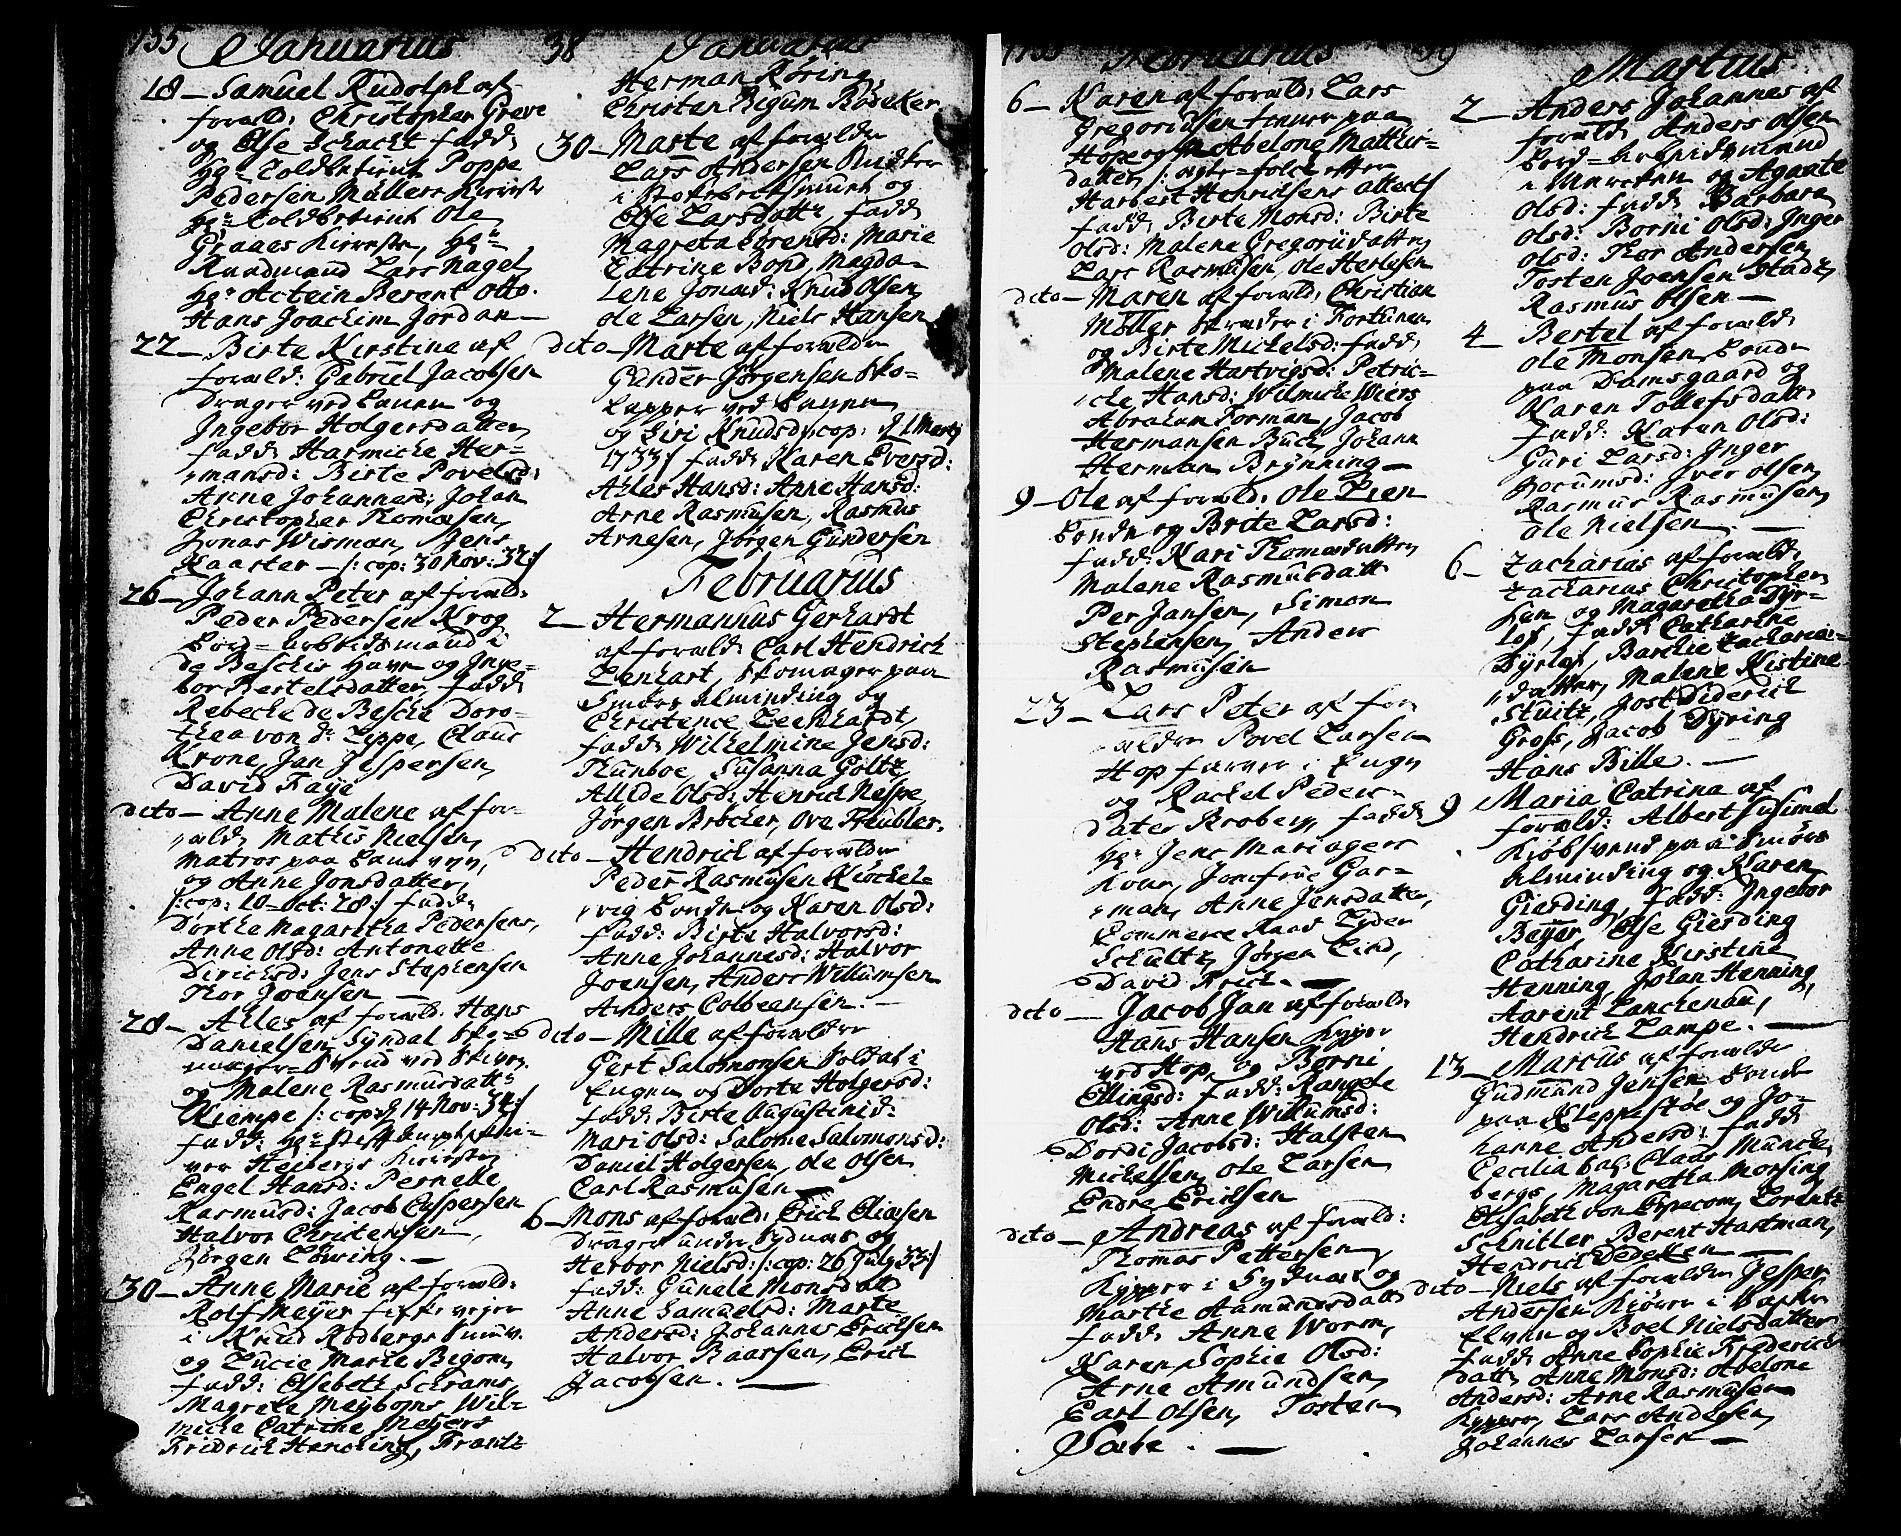 1735 Januarius 38 Januarius
18 – Samuel Rudolph af
foræld: Christopher Greve
og Else Schacht fadd:
Hr: Toldbetient Poppe
Pedersen Müllers Kiereste
Hr: Toldbetient Ole
Graaes Kiereste, Hr:
Raadmand Lars Nagel,
Hr: Actein Berent Otto.
Hans Joachim Jordan –
22 – Birte Kirstine af
foræld: Gabriel Jacobsen
Drager ved
og
Ingebor Holgersdatter,
fadd: Harmiche Her-
mansd: Birte Povelsd:
Anne Johannesd: Johan
Christopher Thomæsen,
Jonas Wisman, Jens
Kaarter – /: cop: 30 Nov: 32:/
26 – Johann Peter af foræld:
Peder Pedersen Krog
Bord-Arbeidsmand i
de Besches Have og Inge-
bor Bertelsdatter, fadd:
Rebecke de Besche Doro-
thea von d: Lippe, Claus
Krone, Jan Jespersen,
David Faye
dito – Anne Malene af for-
æld: Mathis Nielsen,
Matros paa
og Anne Jonsdatter,
/: cop: 10 Oct: 28:/ fadd:
Dorthe Magaretha Pedersens,
Anne Olsd: Antonette
Dirichsd: Jens Stephensen
Thor Joensen –
28 – Alles af foræld: Hans
Danielsen Syndal
og Malene Rasmusdatt:
Kiempe /: cop: d 14 Nov: 34:/
fadd: Hr:
Heibergs Kiereste
Engel Hansd: Pernelle
Rasmusd: Jacob Caspersen
Halvor Christensen,
Jørgen Löwing. –
30 – Anne Marie af foræld:
Rolf Meyer
i Knud Rødbergs
og Lucie Marie Bigom,
fadd: Elsebeth Schrams
Magrete Meyboms, Wil-
miche Catrine Meyers
Fridrich Hensching, Frantz
Herman Röring,
Christen Bigum Bödeker
30 – Marte af forældre
Lars Andersen
i Stokebrechs og
Else Larsdatt:, fadd:
Magreta Sørensd: Marie
Catrine Bop, Magda-
lene Jonasd: Knud Olsen,
Ole Larsen, Niels Hansen
dito – Marte af forældre
Gunder Jørgensen Sko-
lapper ved
og Siri Knudsd /: cop: d 1 Martj
1733:/ fadd: Karen Iversd:
Alles Hansd: Anne Hansd:
Arne Rasmusen, Rasmus
Arnesen, Jørgen Gundersen
Februarius
2 – Hermannus Gerhardt
af foræld: Carl Hendrich
Lenhart, Skomager paa
Smørs Alminding og
Christence Leenhardt,
fadd: Wilhelmine Jensd:
Thunboe, Susanna Goltz,
Allide Olsd: Henrich Neppe,
Jørgen Bröcker, Ove Freubler.
dito – Hendrich af forældre
Peder Rasmusen Kiöckel-
vig Bonde og Karen Olsd:
fadd: Birte Halvorsd:
Anne Johannesd: Halvor
Joensen, Anders Willumsen
Anders Colbeensen. –
dito – Mille af forældre
Gert Salomonsen Soldat i
Eugen og Dorte Holgersd:
fadd: Birte Augustinid:
Mari Olsd: Salome Salomonsd:
Daniel Holgersen, Ole Olsen
Carl Rasmusen –
6 – Mons af foræld: Erich Eliæsen
Drager under Sydnæs og
Herbor Nielsd: /: cop: 26 July 33:/
fadd: Gunele Monsdatt
Anne Samuelsd: Marte
Andersd: Johannes Erichsen
Halvor Baarsen, Erich
Jacobsen. –
1735 Februarius 39
6 – Karen af foræld: Lars
Gregoriusen
paa
Hopen og Abelone Mathis-
datter, /: ægte-folck efter
Harbert Henrichsens attest:/
fadd: Birte Monsd: Birte
Olsd: Malene Gregoriidatter,
Lars Rasmusen, Ole Herlefsen
dito – Maren af foræld: Christian
Möller Skræder i Fortunen
og Birte Michelsd: fadd:
Malene Hartvigsd: Petric-
che Hansd: Wilmiche Wiers
Abraham Forman, Jacob
Hermansen Buch, Johann
Herman Brynning –
9 – Ole af foræld: Ole Lien
Bonde og Brite Larsd:
fadd: Kari Thomasdatter,
Malene Rasmusdatt
Per Jansen, Simon
Stephensen, Anders
Rasmusen
23 – Lars Peter af for-
ældre Povel Larsen
Hop farver i Engen
og Rachel Peders-
dater Broberg, fadd:
Hr: Jens Mariagers
Kone, Jomfrue Gar-
man, Anne Jensdatter,
Commerce Raad Lyder
Schultz, Jørgen Lind,
David Frich. –
dito – Jacob Jan af foræld:
Hans Hansen Kyper
ved Hop, og Børni
Ellingsd: fadd: Rangele
Olsd: Anne Willumsd:
Dordi Jacobsd: Halsten
Michelsen, Ole Larsen
Endre Erichsen
dito – Andreas af foræld:
Thomas Pettersen,
Kypper i Sydnæs og
Marthe Aamundsdatt
fadd: Anne Worm,
Karen Sophie Olsd:
Arne Amundsen,
Carl Olsen, Tosten
Sæbe. –
Martius
2 – Anders Johannes af
foræld: Anders Olsen
Bord-Arbeidsmand
i Marcken og Agaate
Olsd: fadd: Barbara
Olsd: Børni Olsd: Inger
Olsd: Thor Andersen,
Tosten Joensen Stadt,
Rasmus Olsen –
4 – Bertel af foræld:
Ole Monsen, Bonde
paa Damsgaard og
Karen Tollefsdatt:
fadd: Karen Olsd:
Guri Larsd: Inger
Jocumsd: Iver Olsen,
Rasmus Rasmusen,
Ole Nielsen. –
6 – Zacharias af foræld:
Zacharias Christopher-
sen og Magaretha Dyr-
los, fadd: Catharine
Dyrlos, Barchie Zacharias-
datter, Malene Kistine
Stuitz, Jost Diderich
Gross, Jacob Dyring
Hans Bille. –
9 Maria Catrina af
foræld: Albert Susimel
Kiøbsvend paa Smørs
Alminding og Karen
Gierding, fadd: Ingebor
Beyer, Else Gierding
Catharine Kirstine
Henning, Johan Henning,
Aarent Lanckenau,
Hendrich Lampe. –
13 – Marcus af forældre
Gudmund Jensen Bonde
paa Kleppestøe og Jo-
hanne Andersd: fadd:
Cecilia Sal: Claus Münche-
bergs, Magaretha Morsing
Elisabeth von Erpecom, Lorentz
Schnitler Berent Hartman,
Hendrich Dedeken –
dito – Niels af forældre Jesper
Andersen Kiører i
og Boel Nielsdatter
fadd: Anne Sophie Frederichs
datt, Anne Monsd: Abelone
Andersd: Arne Rasmusen
Kypper, Lars Andersen,
Johannes Larsen –